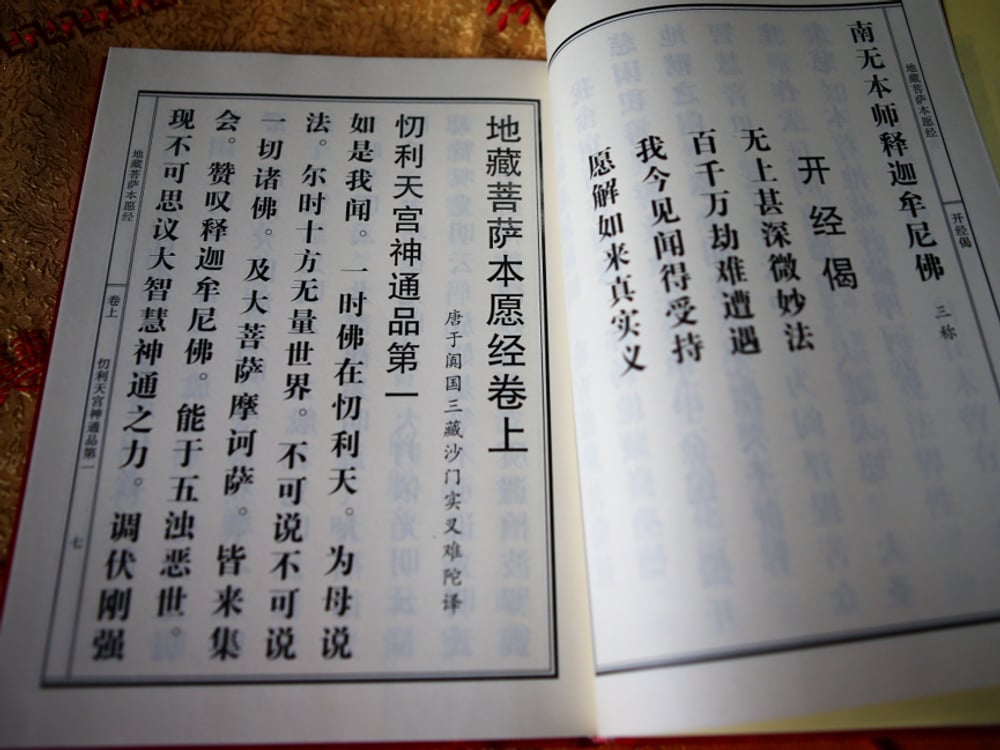 地藏菩萨本愿经
开经偈
南无本师释迦牟尼佛 三称
开经偈
无上甚深微妙法
百千万劫难遭遇
我今见闻得受持
愿解如来真实义
地藏菩萨本愿经卷上
唐于阗国三藏沙门实叉难陀译
忉利天宫神通品第一
如是我闻。一时佛在忉利天。为母说
法。尔时十方无量世界。不可说不可说
一切诸佛。及大菩萨摩诃萨。皆来集
会。赞叹释迦牟尼佛。能于五浊恶世。
现不可思议大智慧神通之力。调伏刚强
地藏菩萨本愿经
卷上
忉利天宫神通品第一
七